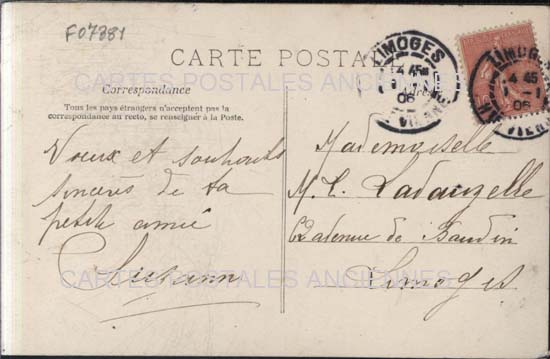 F07381
CARTE POSTALE
LIMOGES
4 45
06
LIMOGES
4 45
06
CARTES POSTALES ANCIENNES
Correspondance
Tous les pays étrangers n'acceptent pas la
correspondance au recto, se renseigner à la Poste.
Voeux et souhaits
sincères de ta
petite amie
Mademoiselle
M. L. Ladauzelle
62 avenue de Baudin
Limoges
CARTES POSTALES ANCIENNES